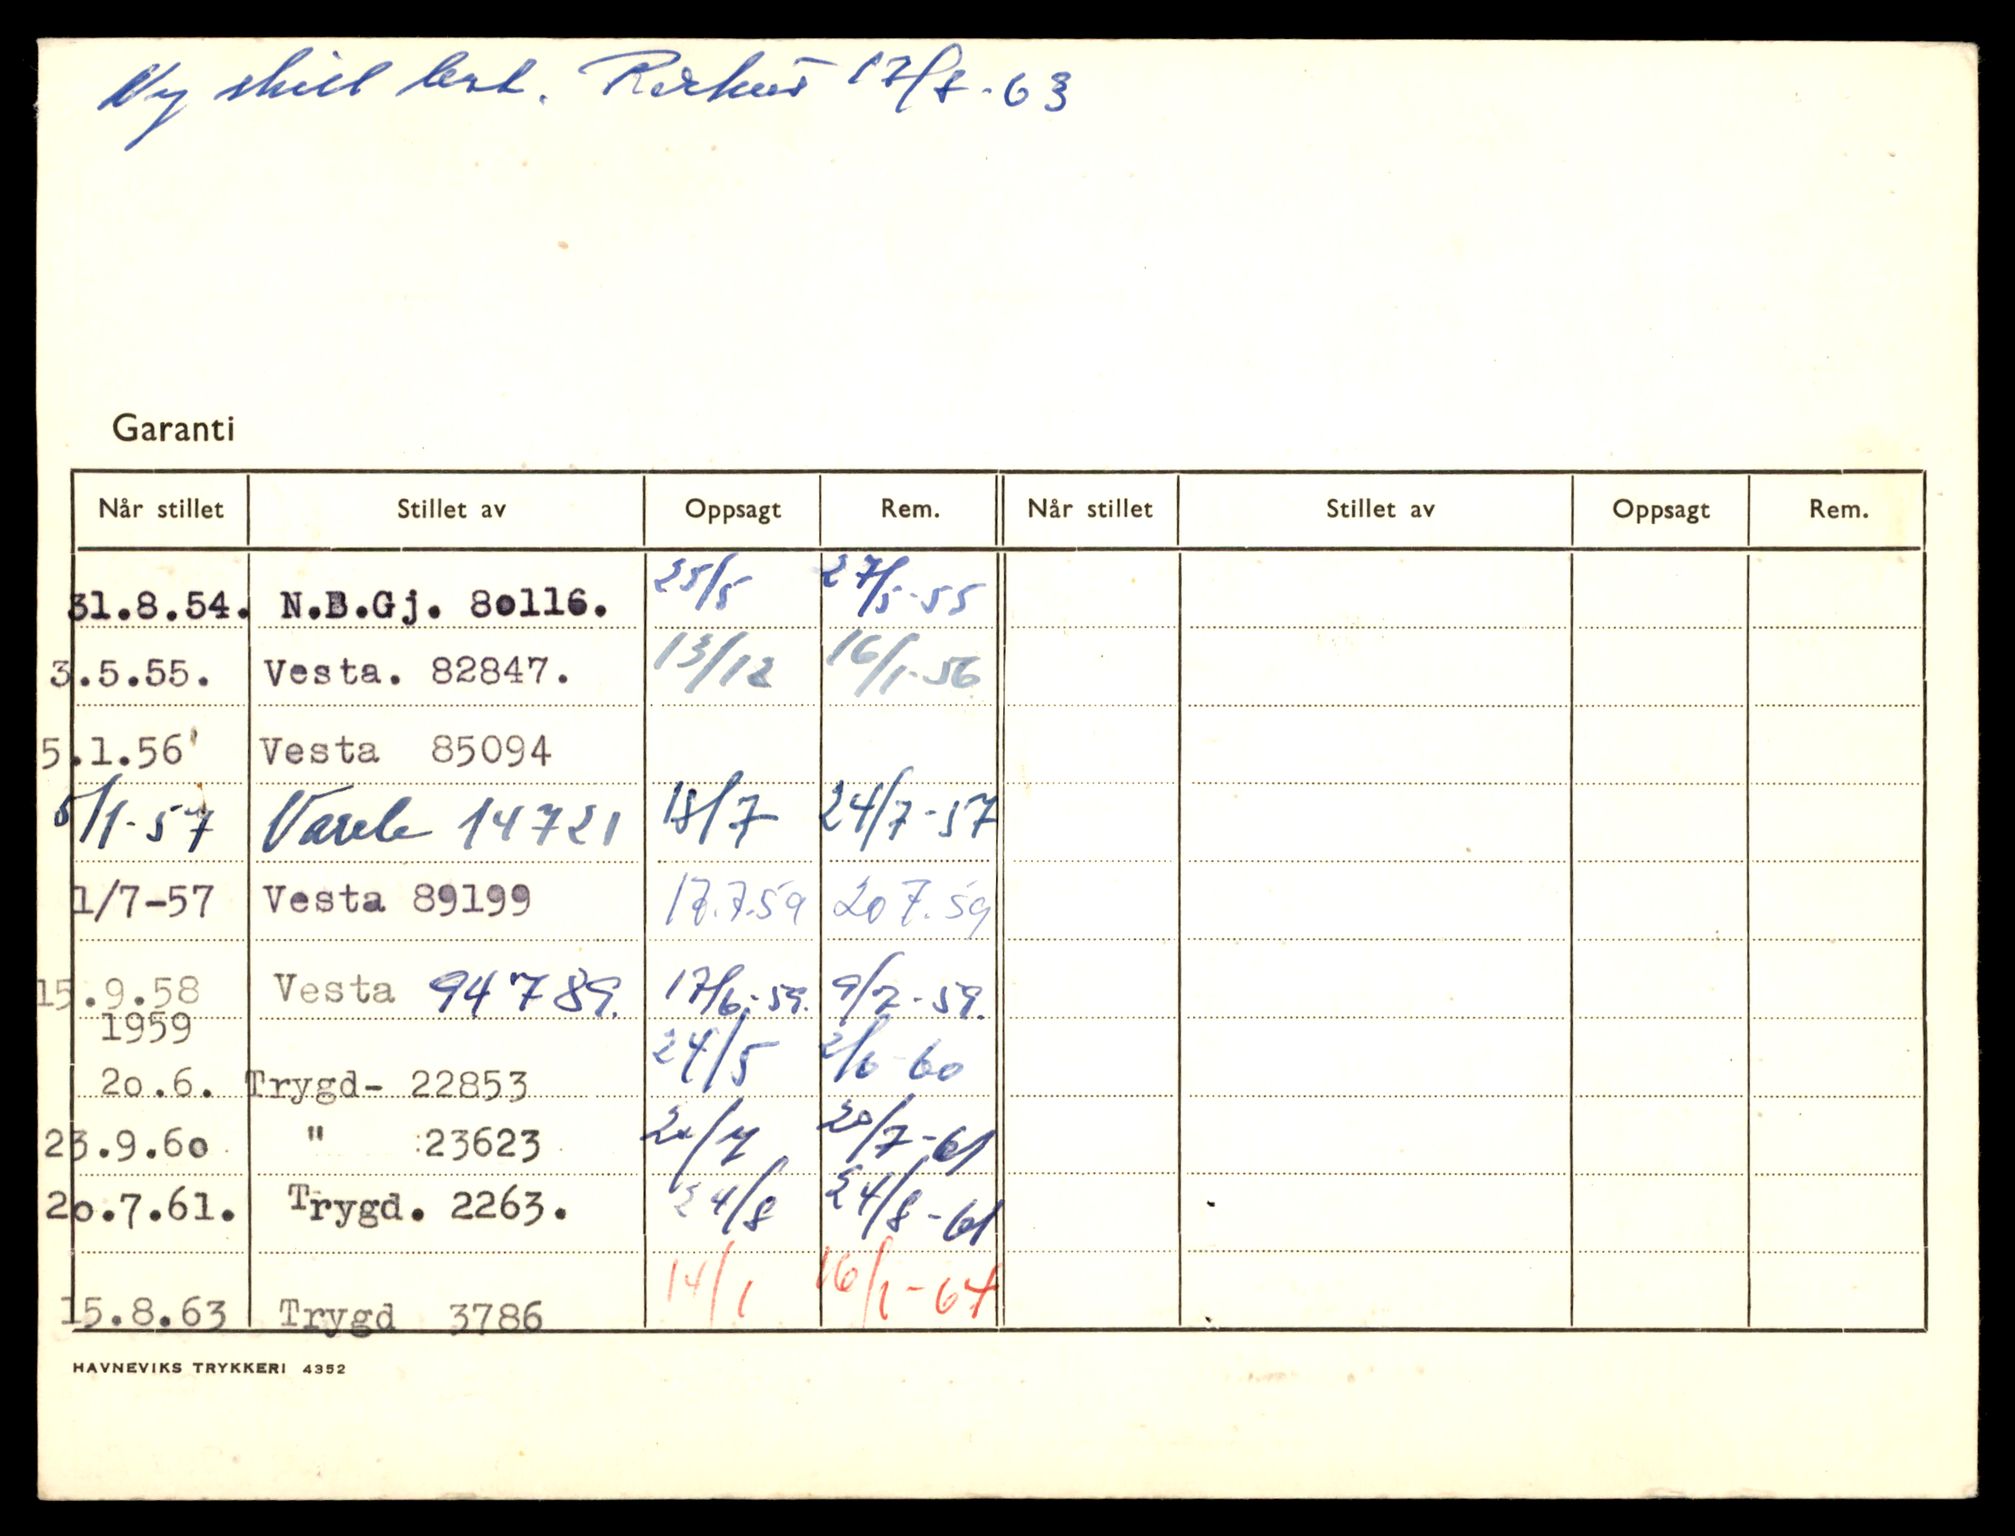 Ny skilt best. 17/8-63
Garanti
Når stillet Stillet av Oppsagt Rem. Når stillet Stillet av Oppsagt Rem.
31.8.54. N.B.Gj. 80116. 25/5 27/5-55
3.5.55. Vesta. 82847. 13/12 16/1-56
5.1.56 Vesta 85094
5/1-57 14721 18/7 24/7-57
1/7-57 Vesta 89199 17.7.59 20 7.59
15.9.58 Vesta 94789. 17/6-59. 9/7-59.
1959
20.6. Trygd- 22853 24/5 2/6-60
23.9.60 " 23623 20/7 20/7-61
20.7.61. Trygd. 2263. 24/8 24/8-61
15.8.63 Trygd 3786 14/1 16/1-67
HAVNEVIKS TRYKKERI 4352